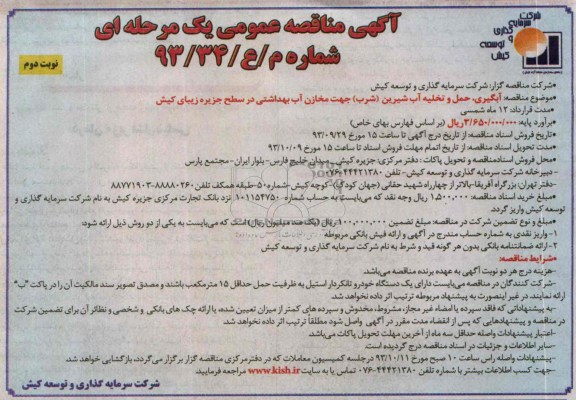 شرکت
سرمایه
گذاری
و
توسعه
کیش
آگهی مناقصه عمومی یک مرحله ای
شماره م/ع/۹۳/۳۴
نوبت دوم
•شرکت مناقصه گزار: شرکت سرمایه گذاری و توسعه کیش
•موضوع مناقصه: آبگیری، حمل و تخلیه آب شیرین (شرب) جهت مخازن آب بهداشتی در سطح جزیره زیبای کیش
•مدت قرارداد: ۱۲ ماه شمسی
•برآورد پایه: ۳/۶۵۰/۰۰۰/۰۰۰ریال (بر اساس فهارس بهای خاص)
•تاریخ فروش اسناد مناقصه: از تاریخ درج آگهی تا ساعت ۱۵ مورخ ۹۳/۰۹/۲۹
•مدت تحویل اسناد مناقصه: از تاریخ اتمام مهلت فروش اسناد تا ساعت ۱۵ مورخ ۹۳/۱۰/۰۹
•محل فروش اسنادمناقصه و تحویل پاکات: دفتر مرکزی: جزیره کیش-میدان خلیج فارس-بلوار ایران-مجتمع پارس
-دبیرخانه شرکت سرمایه گذاری و توسعه کیش- تلفن ۴۴۴۲۱۳۸۰-۰۷۶
-دفتر تهران: بزرگراه آفریقا-بالاتر از چهارراه شهید حقانی (جهان کودک)- کوچه کیش-شماره۵۰-طبقه همکف تلفن ۸۸۸۸۰۲۶۰-۸۸۷۷۱۹۰۳
•مبلغ خرید اسناد مناقصه: ۱،۵۰۰،۰۰۰ ریال وجه نقد که می‌بایست به حساب شماره ۱۰۱۱۵۴۷۵۰ نزد بانک تجارت مرکزی جزیره کیش به نام شرکت سرمایه گذاری و توسعه
کیش واریز گردد.
•مبلغ و نوع تضمین شرکت در مناقصه: مبلغ تضمین ۱۰۰،۰۰۰،۰۰۰ ریال (یک صد میلیون ریال) است که می‌بایست به یکی از دو روش ذیل ارائه شود:
۱-واریز نقدی به شماره حساب مندرج در آگهی و ارائه فیش بانکی مربوطه
۲-ارائه ضمانتنامه بانکی بدون هر گونه قید و شرط به نام شرکت سرمایه گذاری و توسعه کیش
•شرایط مناقصه:
-هزینه درج هر دو نوبت آگهی به عهده برنده مناقصه می‌باشد.
-شرکت کنندگان در مناقصه می‌بایست دارای یک دستگاه خودرو تانکردار استیل به ظرفیت حمل حداقل ۱۵ مترمکعب باشند و مصدق تصویر سند مالکیت آن را در پاکت "ب"
ارائه نمایند، در غیر اینصورت به پیشنهاد مربوطه ترتیب اثر داده نخواهد شد.
-به پیشنهاداتی که فاقد سپرده یا امضاء غیر مجاز، مشروط، مخدوش و سپرده های کمتر از میزان تعیین شده، یا ارائه چک های بانکی و شخصی و نظائر آن برای تضمین شرکت
در مناقصه و پیشنهادهایی که پس از انقضاء مدت مقرر در آگهی واصل شود مطلقاً ترتیب اثر داده نخواهد شد.
-اعتبار پیشنهادات واصله حداقل سه ماه از آخرین مهلت تحویل پاکات می‌باشد.
-سایر اطلاعات و جزئیات در اسناد مناقصه درج گردیده است.
-پیشنهادات واصله راس ساعت ۱۰ صبح مورخ ۹۳/۱۰/۱۱ درجلسه کمیسیون معاملات که در دفترمرکزی مناقصه گزار برگزار می‌گردد، بازگشایی خواهد شد.
-جهت کسب اطلاعات بیشتر با شماره تلفن ۴۴۴۲۱۳۸۰-۰۷۶ تماس یا به سایت www.kish.ir مراجعه فرمایید.
شرکت سرمایه گذاری و توسعه کیش